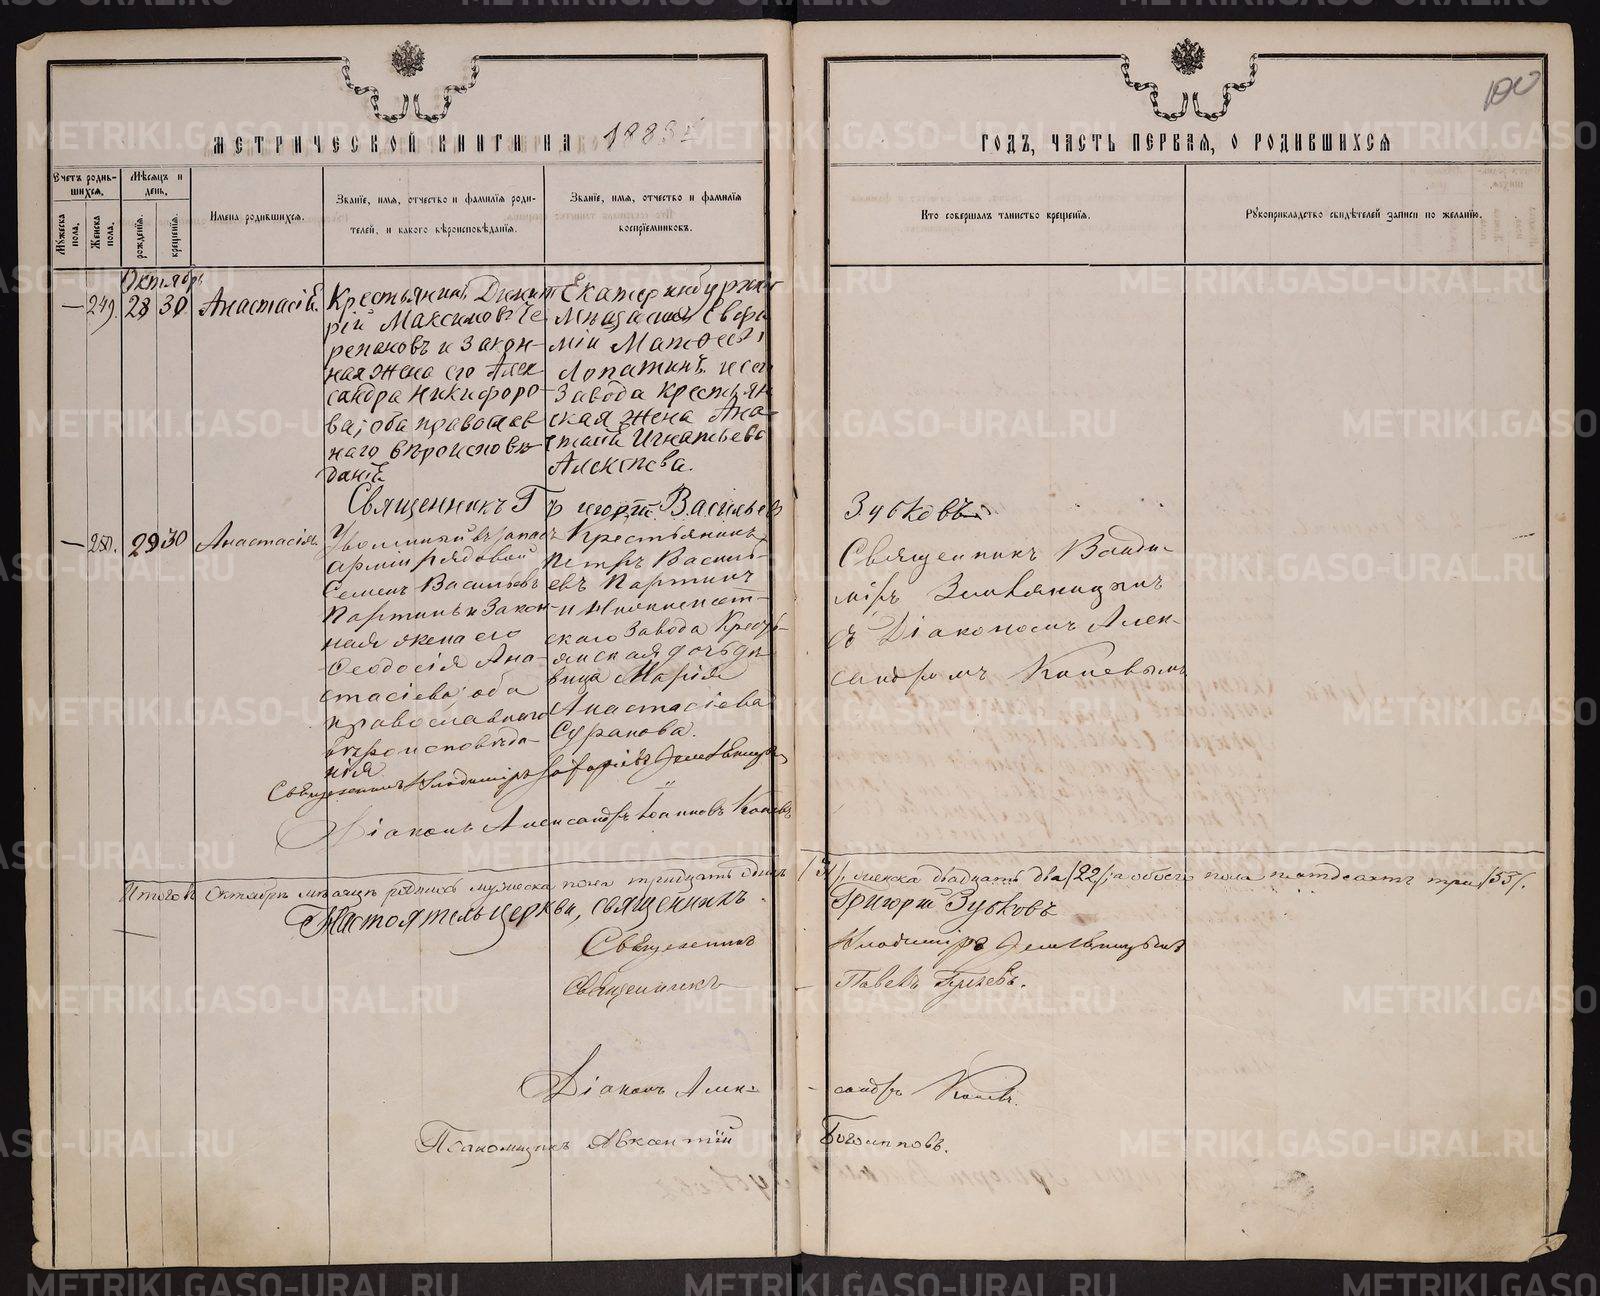 100
МЕТРИЧЕСКОЙ КНИГИ НА 1883
ГОДЪ, ЧАСТЬ ПЕРВАЯ, О РОДИВШИХСЯ
Счетъ родившихся.
Мѣсяцъ и день.
Мужеска пола.
Женска пола.
рожденія.
крещенія.
Имена родившихся.
Званіе, имя, отчество и фамилія родителей, и какого вѣроисповѣданія.
Званіе, имя, отчество и фамилія воспріемниковъ.
Кто совершалъ таинство крещенія.
Рукоприкладство свидѣтелей записи по желанію.
Октябрь
— 249. 28 30 Анастасія.
Крестьянинъ Димит
рій Максимовъ Че
репановъ и закон-
ная жена его Алек-
сандра Никифоро-
ва; оба православ
наго вѣроисповѣ-
данія.
Екатеринбургскій
Мѣщанинъ Евфи
мій
Лопатинъ, и сего
Завода крестьян
ская жена Ана-
стасія Игнатьева
Алексѣева.
Священникъ Григорій Васильевъ
Зубковъ
— 250. 29 30 Анастасія.
Уволенный въ запасъ
арміи рядовой
Семенъ Васильевъ
Партинъ и закон-
ная жена его
Ѳеодосія Ана-
стасіева; оба
православнаго
вѣроисповѣда-
нія.
Крестьянинъ
Петръ Василь-
евъ Партинъ
и
скаго завода Кресть-
янская дочь дѣ-
вица Марія
Анастасіева
Суранова.
Священникъ Влади-
міръ
съ Діакономъ Алек-
сандромъ Коневымъ
Священникъ Владиміръ
Діаконъ Александръ Іоанновъ Коневъ
Итого въ Октябрѣ мѣсяцѣ родилось мужеска пола тридцать одинъ /31/, женска двадцать два /22/, а обоего пола пятдесятъ три /53/.
Настоятель церкви, священникъ Григорій Зубковъ
Священникъ Владиміръ
Священникъ Павелъ
Діаконъ Александръ Коневъ.
Псаломщикъ Авксентій
METRIKI.GASO-URAL.RU